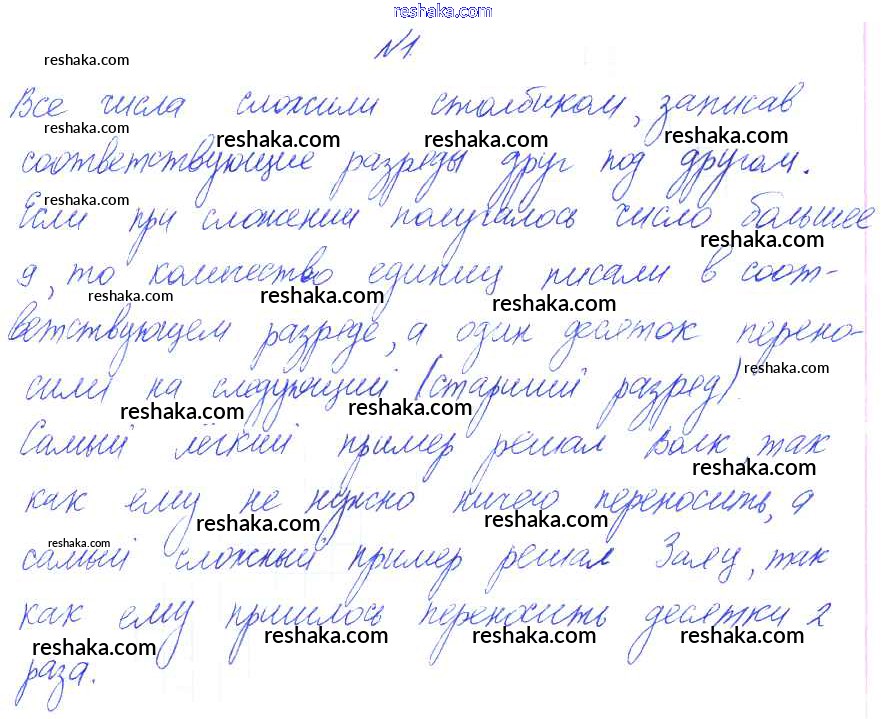 reshaka.com
№1
reshaka.com
Все числа сложили столбиком, записав
reshaka.com reshaka.com reshaka.com reshaka.com
соответствующие разряды друг под другом.
reshaka.com
Если при сложении получалось число большее
reshaka.com
9, то количество единиц писали в соот-
reshaka.com reshaka.com reshaka.com
ветствующем разряде, а один десяток перено-
reshaka.com
сили на следующий (старший разряд)
reshaka.com reshaka.com
Самый лёгкий пример решал Волк, так
reshaka.com
как ему не нужно ничего переносить, а
reshaka.com reshaka.com
reshaka.com
самый сложный пример решал Заяц, так
как ему пришлось переносить десятки 2
reshaka.com reshaka.com reshaka.com reshaka.com
раза.